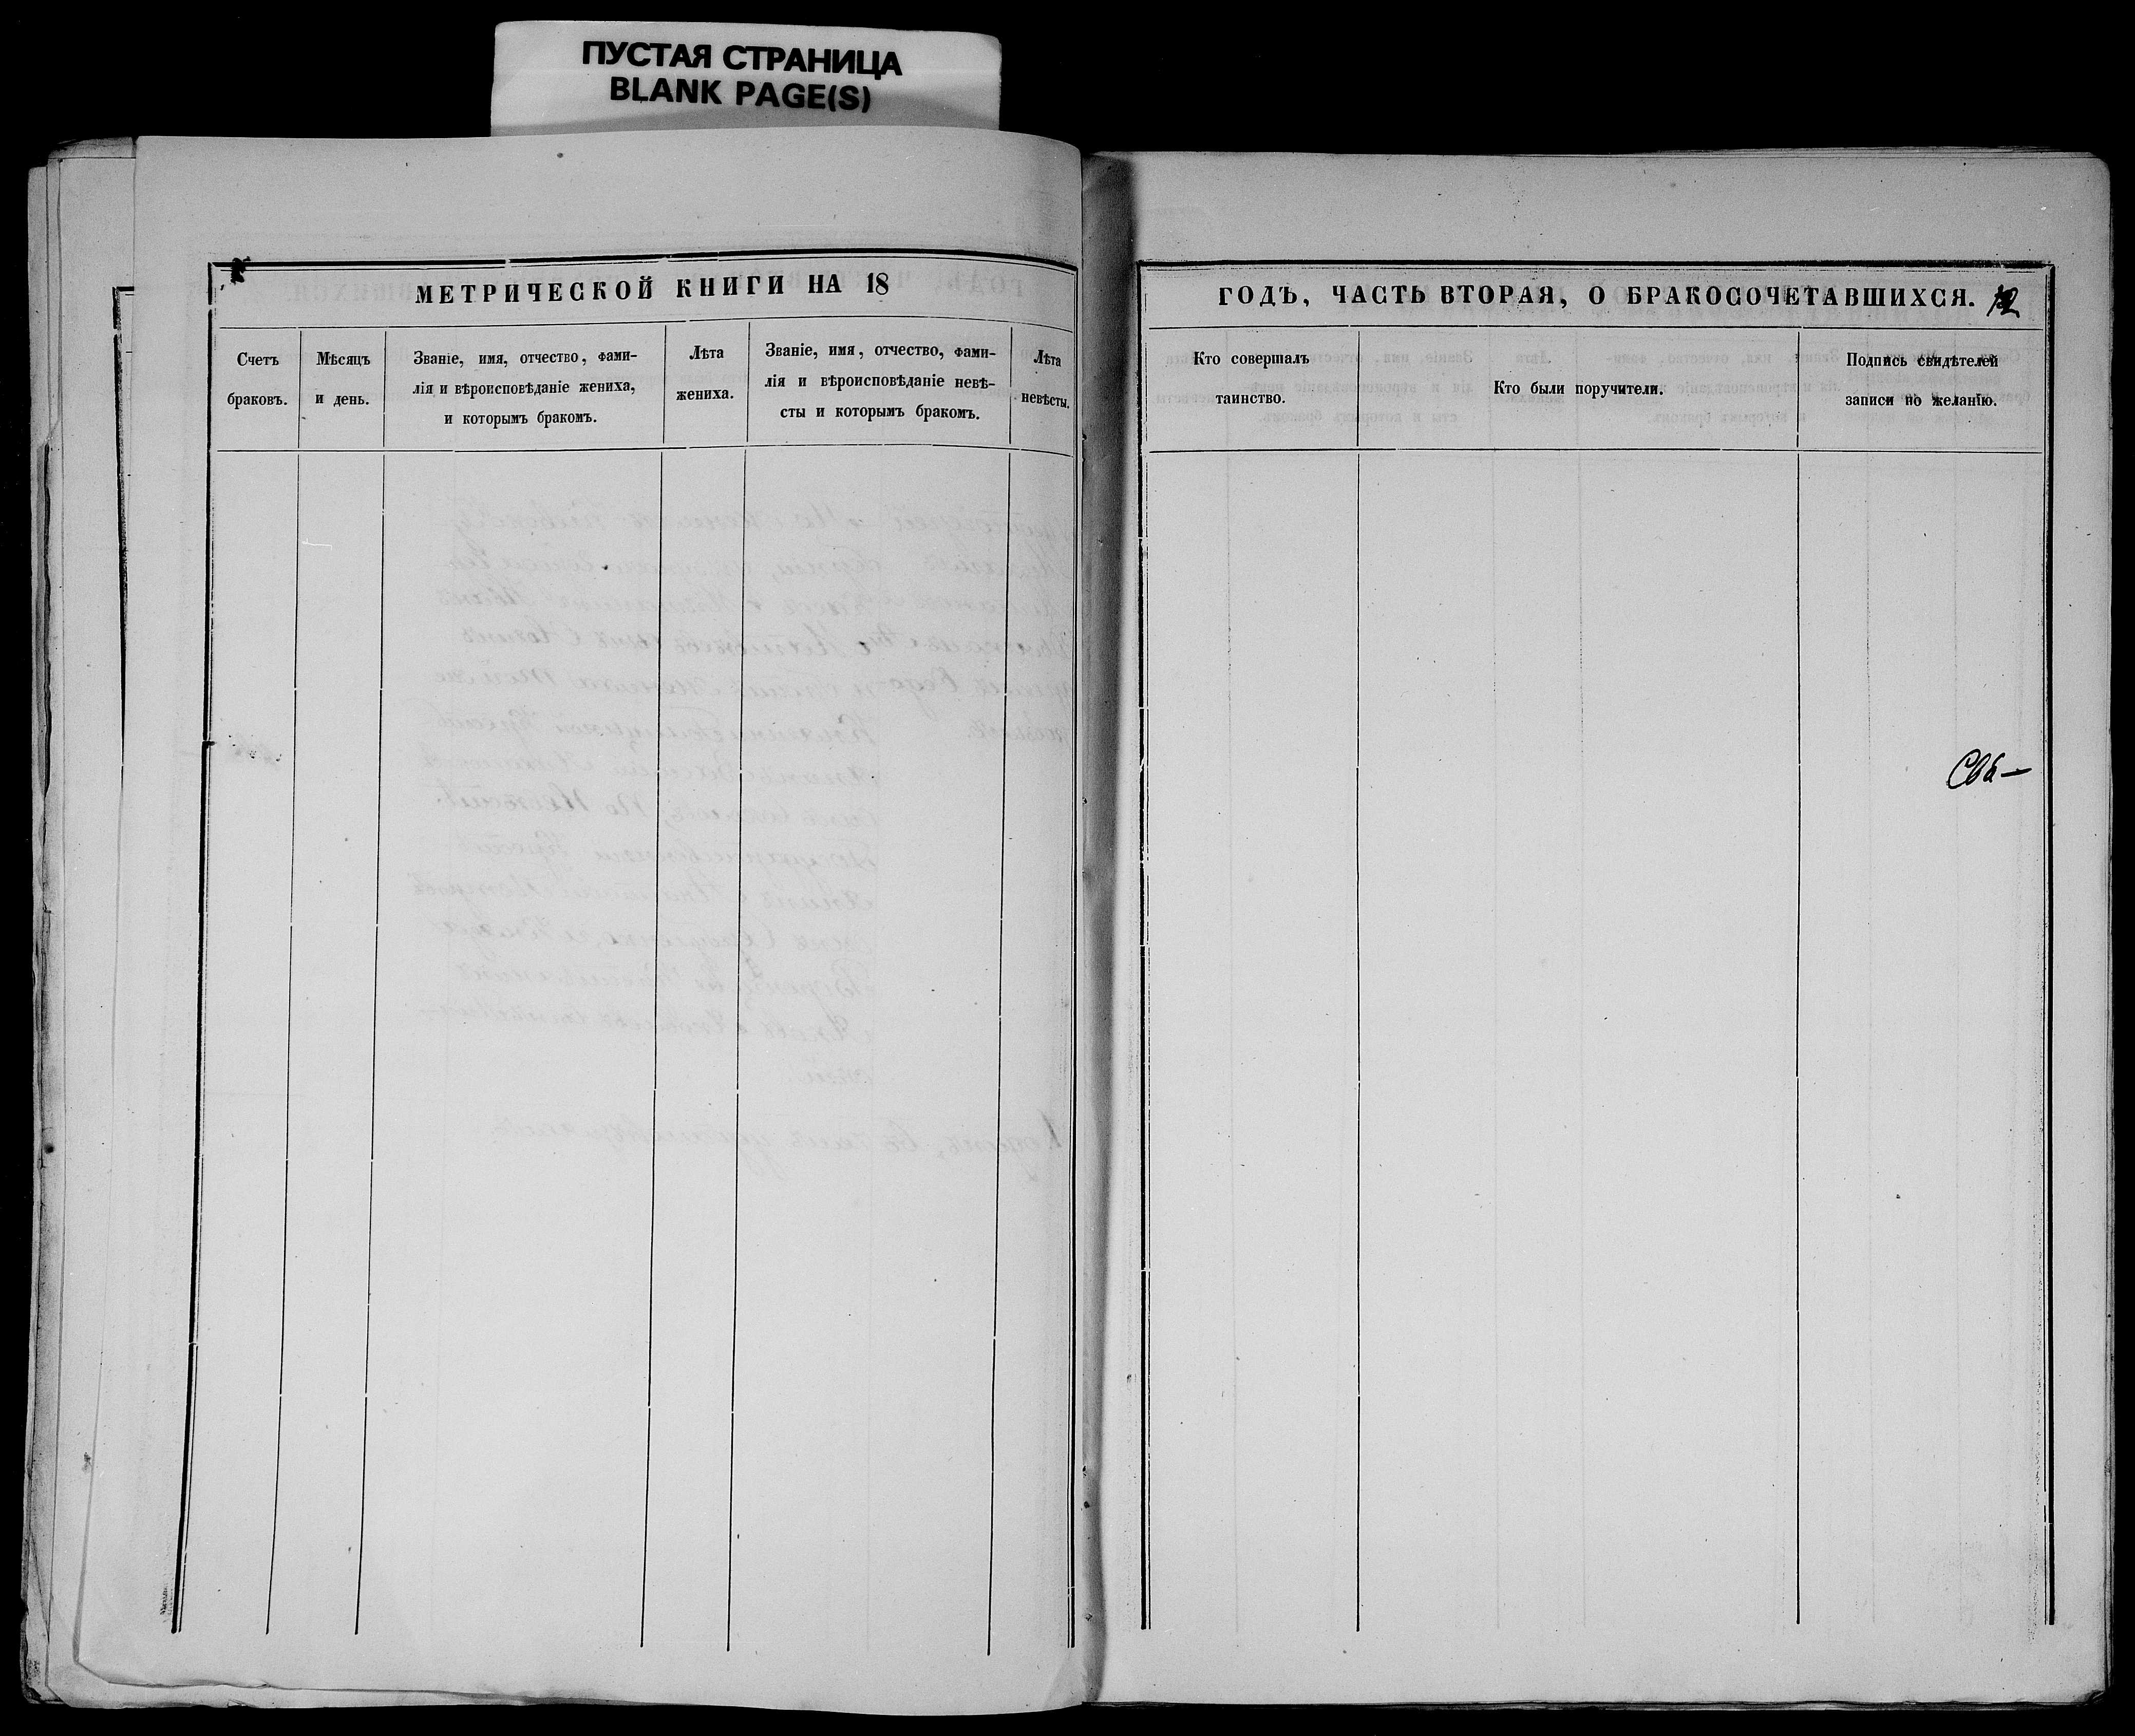 ПУСТАЯ СТРАНИЦА
BLANK PAGE(S)
МЕТРИЧЕСКОЙ КНИГИ НА 18
Счетъ
браковъ.
Мѣсяцъ
и день.
Званіе, имя, отчество, фами-
лія и вѣроисповѣданіе жениха,
и которымъ бракомъ.
Лѣта
жениха.
Званіе, имя, отчество, фами-
лія и вѣроисповѣданіе невѣ-
сты и которымъ бракомъ.
Лѣта
невѣсты.
ГОДЪ, ЧАСТЬ ВТОРАЯ, О БРАКОСОЧЕТАВШИХСЯ.
Кто совершалъ
таинство.
Кто были поручители.
Подпись свидѣтелей
записи по желанію.